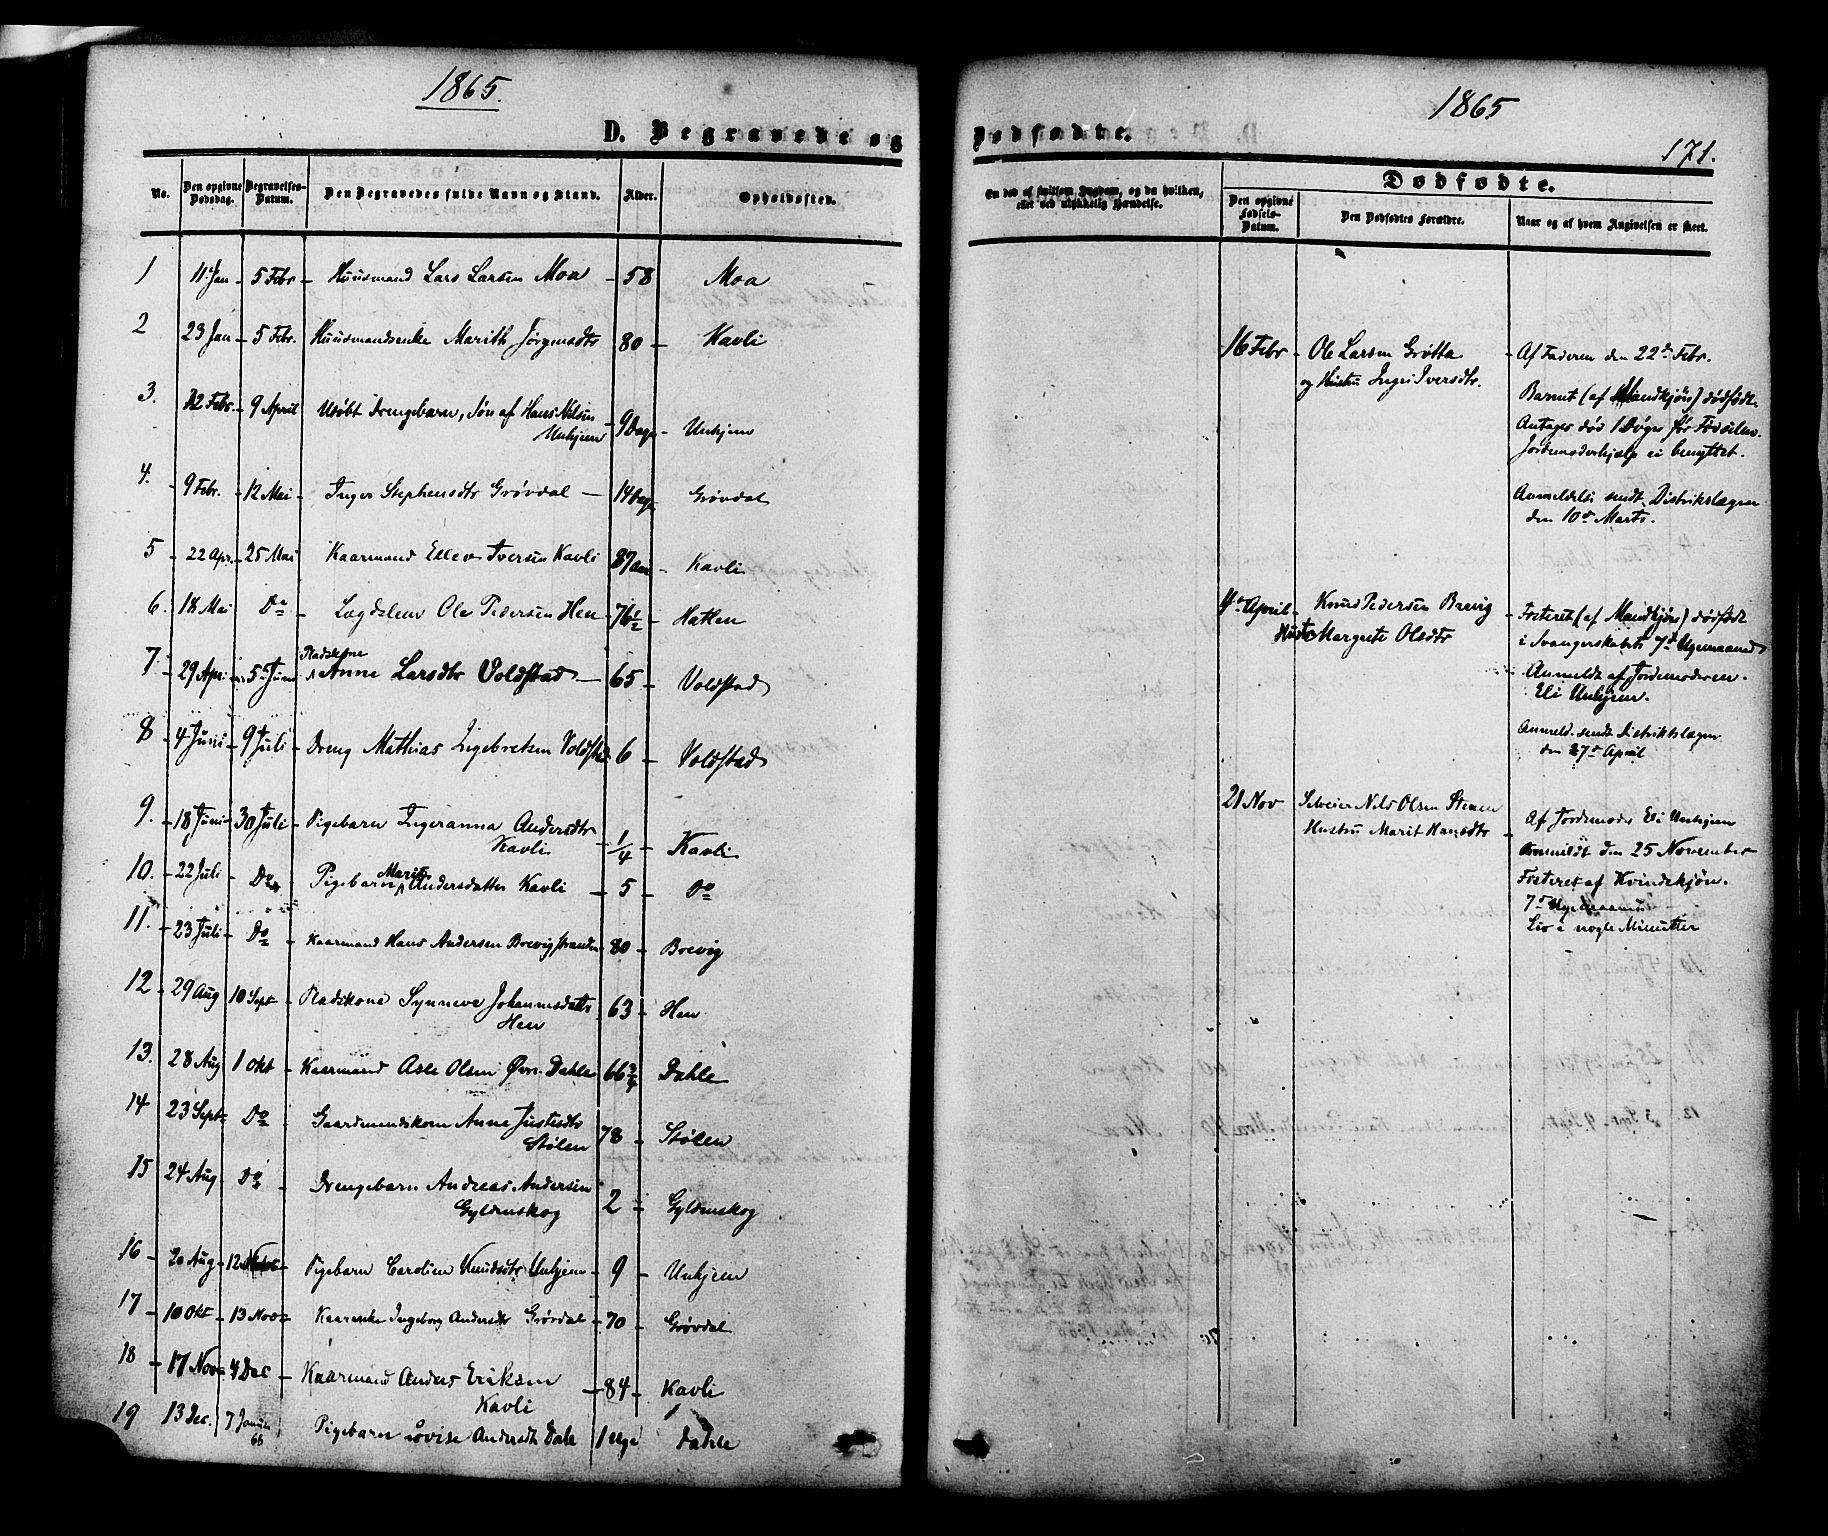 1865.
D. Begravede og
No.
Den opgivne Dødsdag.
Begravelses-Datum.
Den Begravedes fulde Navn og Stand.
Alder.
Opholdssted.
1 11 Jan 5 Febr Huusmand Lars Larsen Moa 58 Moa
2 23 Jan 5 Febr. Huusmandsenke Marith Jørgensdtr 80 Kavli
3. 22 Febr. 9 April Udøbt Drengebarn, Søn af Hans Nilsen 9 Dage Unhjem
Unhjem
4. 9 Febr. 12 Mai Inger Stephensdtr Grøvdal 14 Dage Grøvdal
5 22 Apr. 25 Mai Kaarmand Ellev Iversen Kavli 87 Kavli
6. 18 Mai Do Lægdslem Ole Pedersen Hen 76 1/2 Hatlen
Pladskone
7. 29 Apr 5 Juni Anne Larsdtr Voldstad 65 Voldstad
8 4 Juni 9 Juli Dreng Mathias Ingebretsen Voldstad 6 Voldstad
9. 18 Juni 30 Juli Pigebarn Ingeranna Andersdtr 1/4 Kavli
Kavli
Marit
10. 22 Juli Do Pigebarn Andersdatter Kavli 5 Do
11. 23 Juli Do Kaarmand Hans Andersen Brevig 80 Brevig
12 29 Aug 10 Sept Pladskone Synneve Johannesdatter 63 Hen
Hen
13. 28 Aug 1 Okt Kaarmand Asle Olsen Øvr. Dahle 66 3/4 Dahle
14 23 Sept Do Gaardmandskone Anne Justesdtr 78 Stølen
Stølen
15 24 Aug Do Drengebarn Andreas Andersen 2 Gyldenskog
Gyldenskog
16 20 Aug 12 Pigebarn Caroline Knudsdtr Unhjem 9 Unhjem
17 10 Okt 13 Nov Kaarenke Ingeborg Andersdtr Grøvdal 70 Grøvdal
18 17 Nov 4 Dec Kaarmand Anders Eriksen 84 Kavli
Kavli
19 13 Dec. 7 Januar Pigebarn Lovise Andersdtr Dale 1 Uge Dahle
66
1865
Dødfødte.
171.
En død af smitsom Sygdom, og da hvilken, eller ved ulykkelig Hændelse.
Dødfødte.
Den opgivne Fødsels-Datum.
Den Dødfødtes Forældre.
Naar og af hvem Angivelsen er skeet.
16 Febr Ole Larsen Grøtta
og Hustru Ingri Iversdtr.
Af Faderen den 22de Febr.
Barnet (af Mandkjøn) dødfødt.
Antages død 1 Døgn før Fødselen.
Jordemoderhjælp ei benyttet.
Anmeldelse sendt Distriktslægen
den 10de Marts.
4de April Knud Pedersen Brevig
Hustru Margrete Olsdtr
Fosteret (af Mandkjøn) dødfødt
i Svangerskabets 7de Ugemaaned
Anmeldt af Jordemoderen
Eli Unhjem.
Anmeld. sendt Distriktslægen
den 27de April
21 Nov Selveier Nils Olsen Stenen
Hustru Marit Hansdtr
Af Jordemoder Eli Unhjem
Anmeldt den 25 November
Fosteret af Kvindekjøn.
7de Ugemaaned
Liv i nogle Minutter